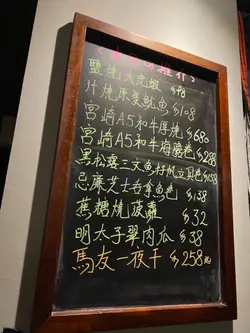 推介
鹽燒大虎蝦 $98
汁燒原隻魷魚 $108
宮崎A5和牛厚燒 $680
宮崎A5和牛海膽卷 $298
黑松露三文魚 卷 $158
忌廉芝士吞拿魚卷 $138
蕉糖燒菠蘿 $32
明太子翠肉瓜 $38
馬友一夜干 $258